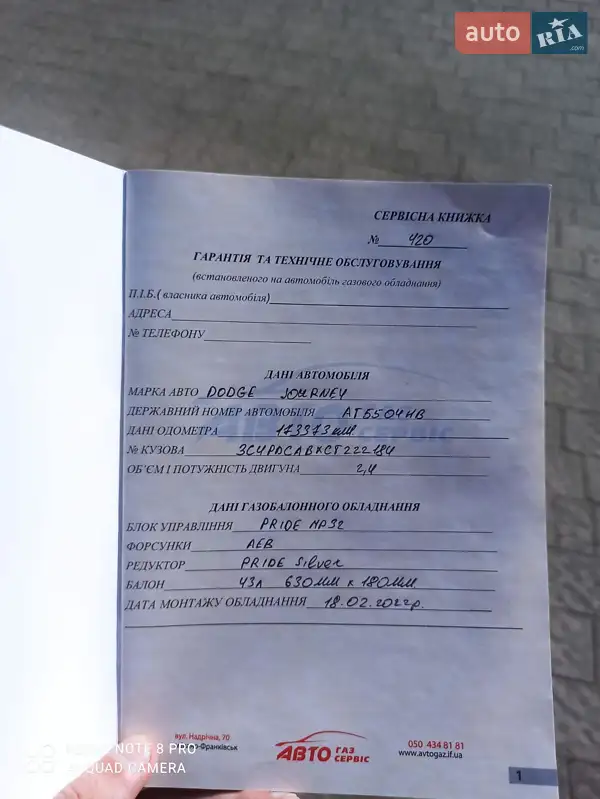 auto RIA .com
СЕРВІСНА КНИЖКА
№ 420
ГАРАНТІЯ ТА ТЕХНІЧНЕ ОБСЛУГОВУВАННЯ
(встановленого на автомобіль газового обладнання)
П.І.Б.( власника автомобіля)
АДРЕСА
№ ТЕЛЕФОНУ
ДАНІ АВТОМОБІЛЯ
МАРКА АВТО DODGE JOURNEY
ДЕРЖАВНИЙ НОМЕР АВТОМОБІЛЯ AT5504HB
ДАНІ ОДОМЕТРА 173373км
№ КУЗОВА 3C4PDCABXCT222184
ОБ'ЄМ І ПОТУЖНІСТЬ ДВИГУНА 2,4
ДАНІ ГАЗОБАЛОННОГО ОБЛАДНАННЯ
БЛОК УПРАВЛІННЯ PRIDE MP32
ФОРСУНКИ AEB
РЕДУКТОР PRIDE Silver
БАЛОН 43л 630мм х 180мм
ДАТА МОНТАЖУ ОБЛАДНАННЯ 18.02.2022р.
вул. Надрічна, 70
о-Франківськ
АВТО ГАЗ СЕРВІС
050 434 81 81
www.avtogaz.if.ua
NOTE 8 PRO
QUAD CAMERA
1